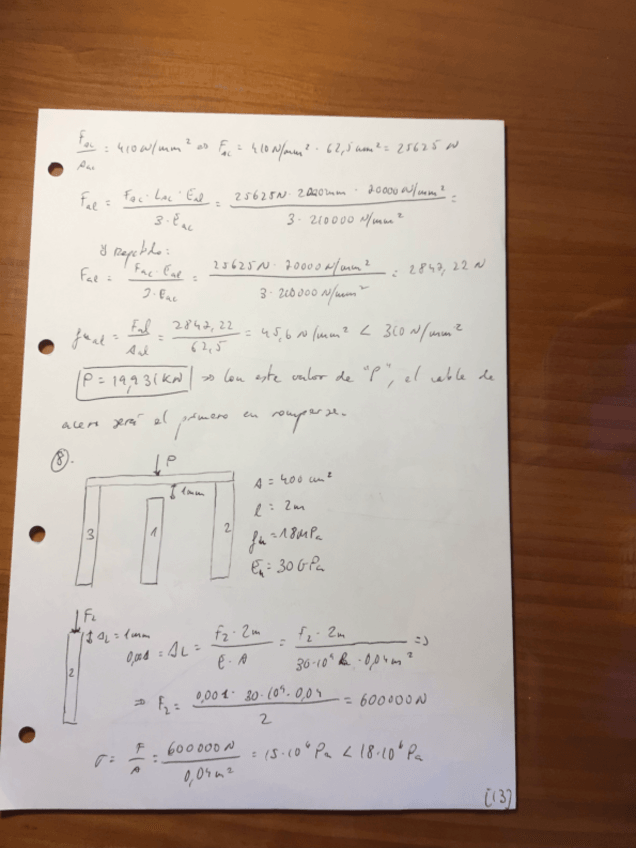 F_ac/A_ac = 410 N/mm² ⇒ F_ac = 410 N/mm² · 62,5 mm² = 25625 N
F_al = F_ac · L_ac · E_al / 3 · E_ac = 25625 N · 2000mm · 70000 N/mm² / 3 · 210000 N/mm² =
Repetido:
F_al = F_ac · E_al / 3 · E_ac = 25625 N · 70000 N/mm² / 3 · 210000 N/mm² = 2847,22 N
fu_al = F_al / A_al = 2847,22 / 62,5 = 45,6 N/mm² < 310 N/mm²
P = 19,931 KN ⇒ Con este valor de "P", el cable de
acero será el primero en romperse.
8.
P
1mm
3 1 2
A = 400 cm²
l = 2m
fu = 18MPa
E_h = 30 GPa
F_2
ΔL = 1mm
2
0,001 = ΔL = F_2 · 2m / E · A = F_2 · 2m / 30·10⁹ Pa · 0,04m² ⇒
⇒ F_2 = 0,001 · 30 · 10⁹ · 0,04 / 2 = 600000 N
σ = F / A = 600000 N / 0,04m² = 15·10⁶ Pa < 18·10⁶ Pa
(13)